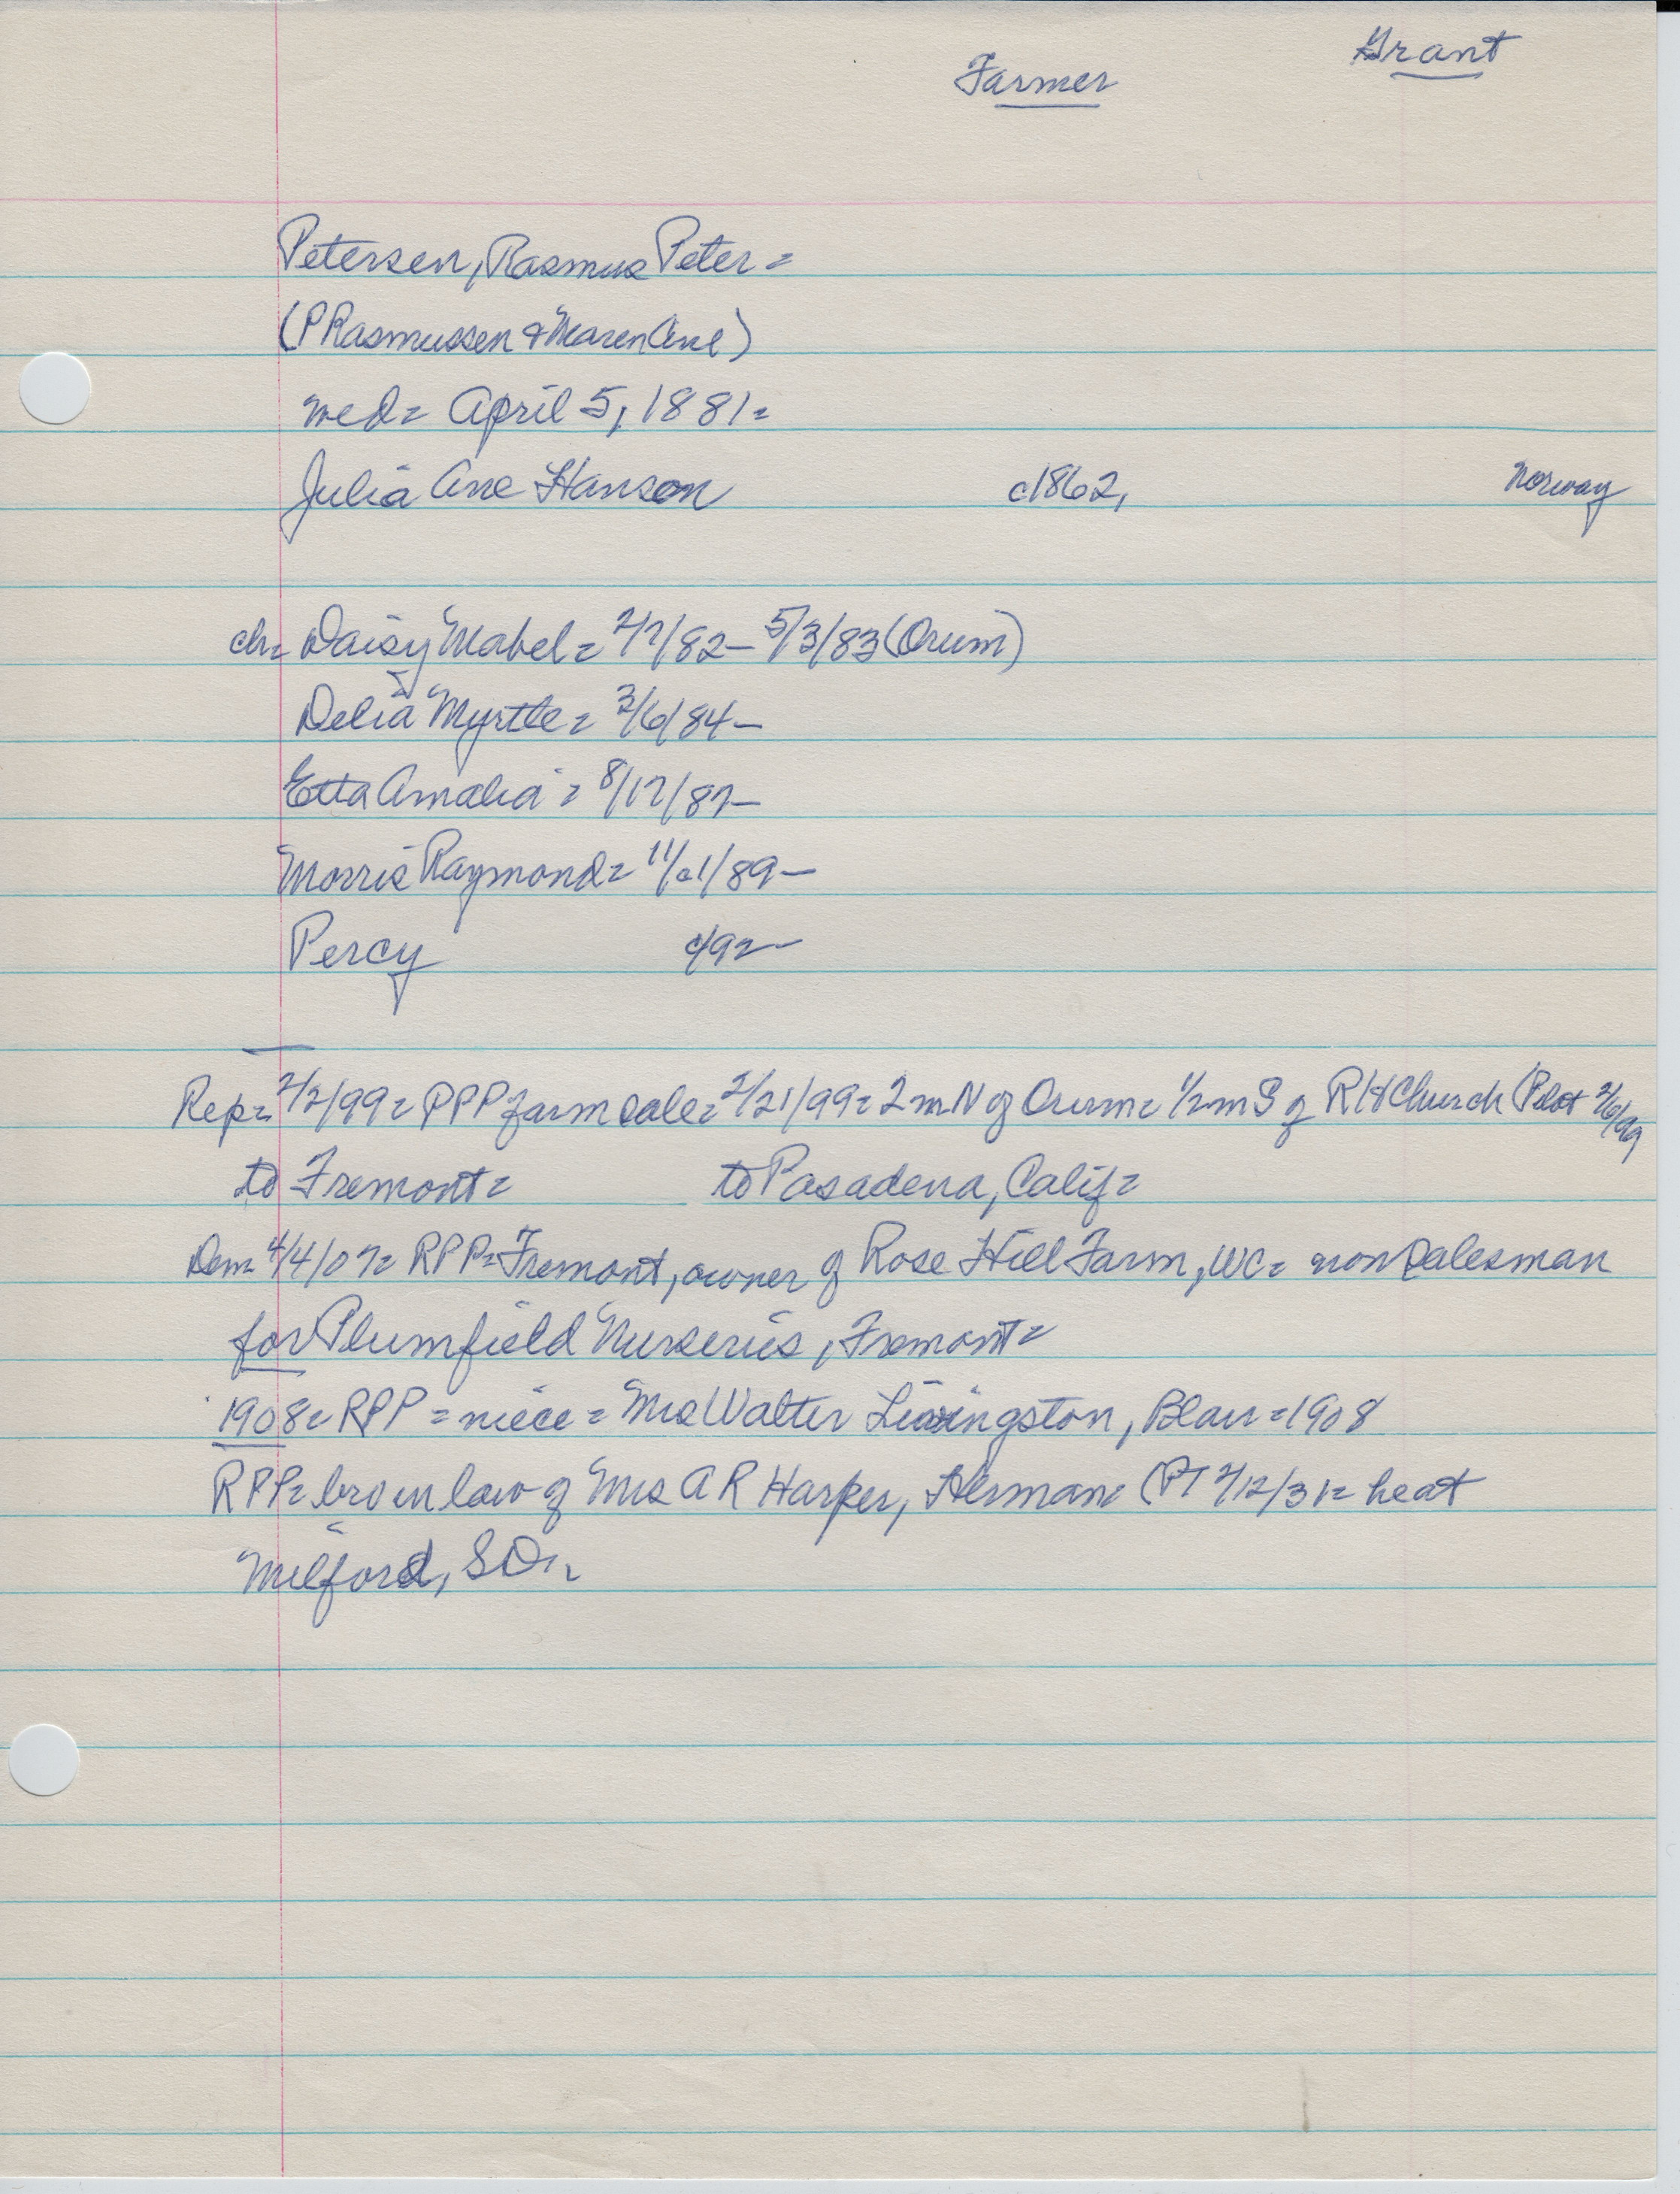 Grant
Farmer
Petersen, Rasmus Peter=
(P Rasmussen & Maren Ane)
med= April 5, 1881=
Julia Ane Hanson c1862, Norway
ch= Daisy Mabel= 2/7/82- 5/3/83 (Orum)
Delia Myrtle= 3/6/84-
Etta Amalia= 8/17/87-
Morris Raymond= 11/21/89-
Percy c/92-
Rep= 2/2/99= RPP farm sale= 2/21/99= 2 m N of Orum= 1/2 m S of RH Church (Pilot 2/6/99
to Fremont= to Pasadena, Calif=
Dem= 4/4/07= RPP= Fremont, owner of Rose Hill Farm, WC= now salesman
for Plumfield Nurseries, Fremont=
1908= RPP= niece= Mrs Walter Livingston, Blair=1908
RPP= bro in law of Mrs A R Harper, Herman= (PT 2/12/31= heat
Milford, SD=